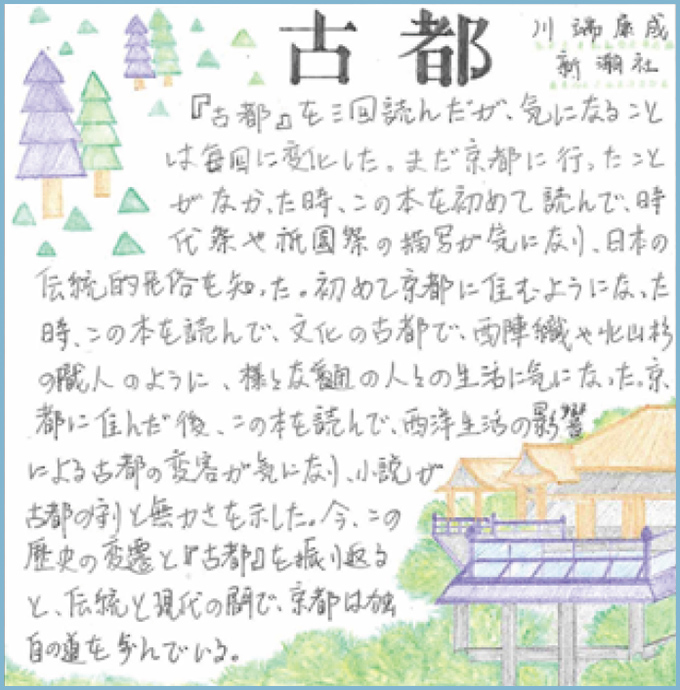 古都
川端康成
新潮社
『古都』を三回読んだが、気になること
は毎回に変化した。まだ京都に行ったこと
がなかった時、この本を初めて読んで、時
代祭や祇園祭の描写が気になり、日本の
伝統的民俗を知った。初めて京都に住むようになった
時、この本を読んで、文化の古都で、西陣織や北山杉
の職人のように、様々な範囲の人との生活に気になった。京
都に住んだ後、この本を読んで、西洋生活の影響
による古都の変容が気になり、小説が
古都の と無力さを示した。今、この
歴史の変遷と『古都』を振り返る
と、伝統と現代の間で、京都は独
自の道を歩んでいる。